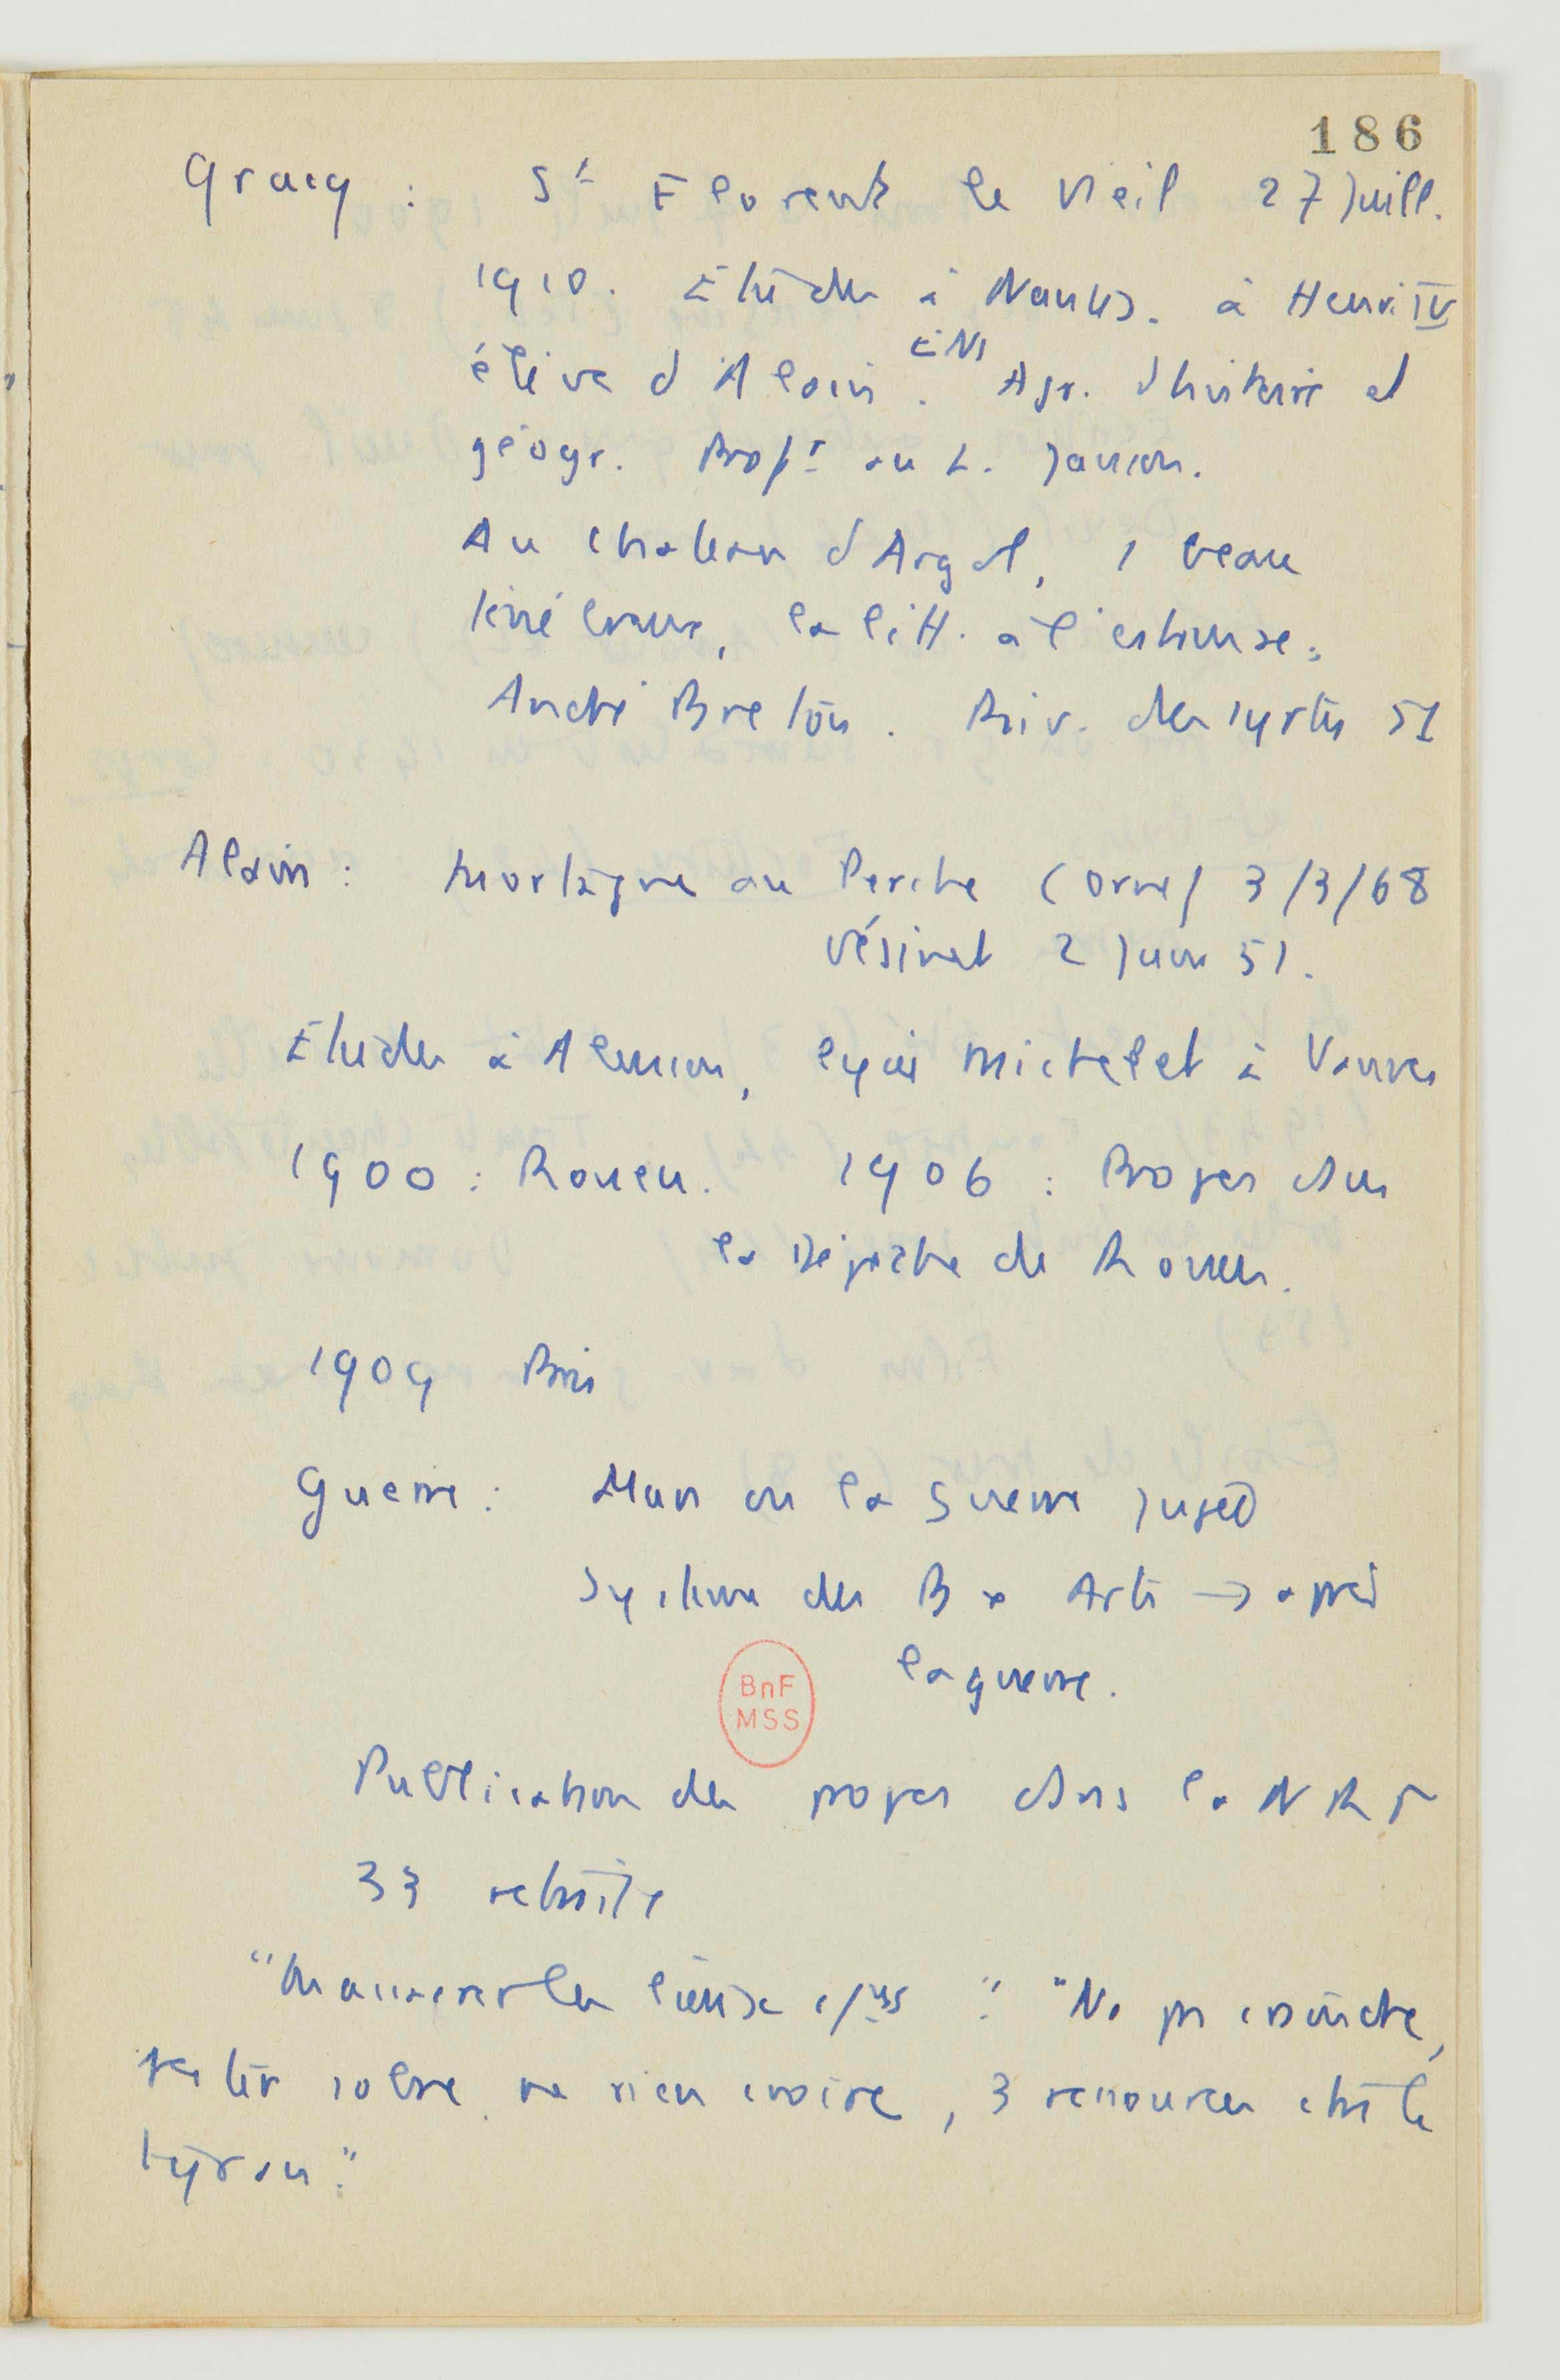 186
Gracq : St Florent le Vieil 27 Juill.
1910. Etudes à Nantes. à Henri IV
ENS
élève d'Alain. Agr. d'histoire et
géogr. Profr au L. Janson.
Au chateau d'Argol, 1 beau
ténébreux, la litt. à l'estomac.
André Breton. Riv. des syrtes 51
Alain : Mortagne au Perche (Orne) 3/3/68
Vésinet 2 Juin 51.
Etudes à Alencon, lycée Michelet à Vanves
1900 : Rouen. 1906 : Propos dans
la Dépêche de Rouen.
1909 Paris
Guerre : Mars ou la guerre jugée
Système des Bx Arts → après
la guerre.
Publication des propos dans la NRF
33 retraite
"Massacre des " "Ne pas craindre,
rester sobre, ne rien croire, 3 ressources chs le
tyran."
BnF
MSS